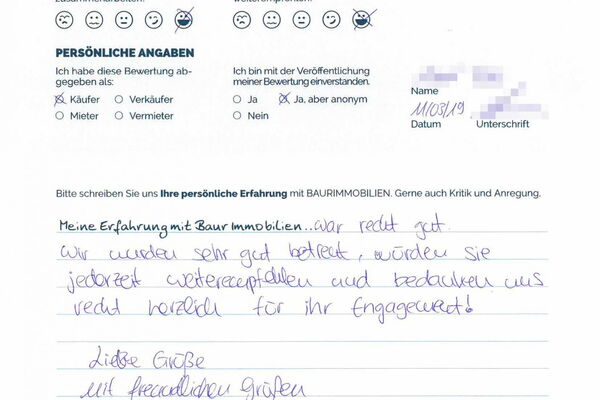 PERSÖNLICHE ANGABEN
Ich habe diese Bewertung ab-
gegeben als:
Käufer
Verkäufer
Mieter
Vermieter
Ich bin mit der Veröffentlichung
meiner Bewertung einverstanden.
Ja
Ja, aber anonym
Nein
Name
11/03/19
Datum
Unterschrift
Bitte schreiben Sie uns Ihre persönliche Erfahrung mit BAURIMMOBILIEN. Gerne auch Kritik und Anregung.
Meine Erfahrung mit Baur Immobilien... war recht gut.
Wir wurden sehr gut betreut, würden sie
jederzeit weiterempfehlen und bedanken uns
recht herzlich für ihr Engagement!
Liebe Grüße
Mit freundlichen Grüßen